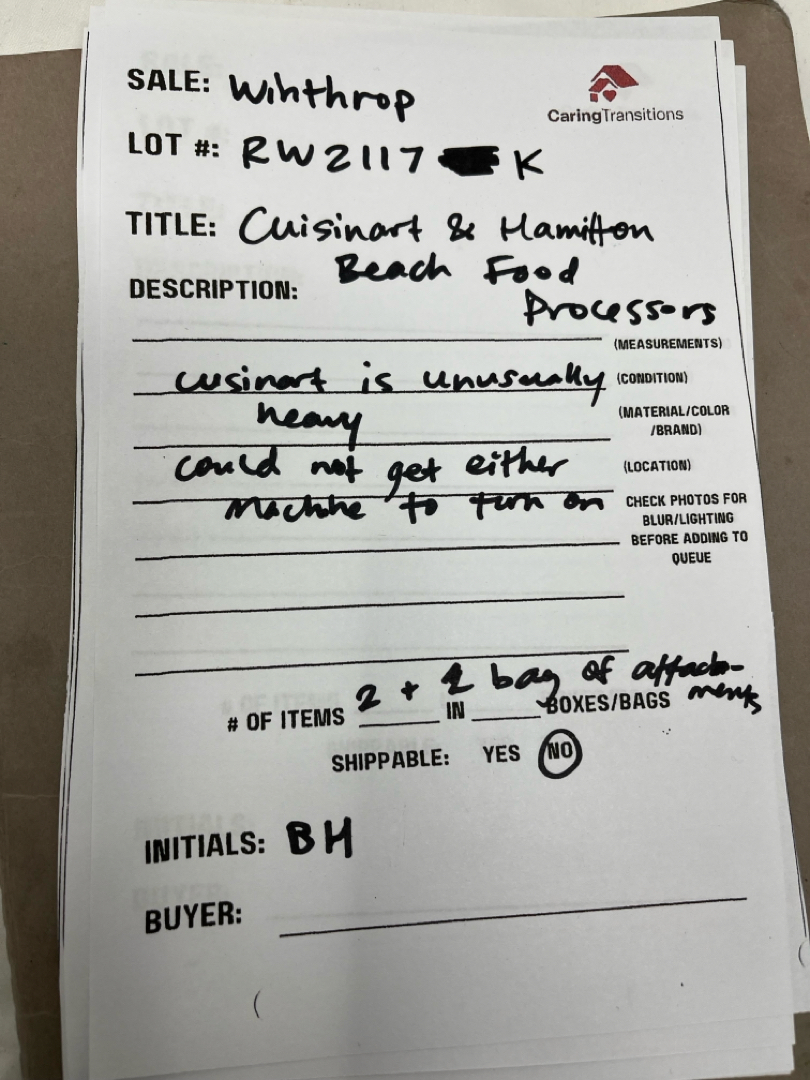 SALE: Winthrop
CaringTransitions
LOT #: RW2117 K
TITLE: Cuisinart & Hamilton
Beach Food
DESCRIPTION:
Processors
(MEASUREMENTS)
cusinart is unusually (CONDITION)
heavy (MATERIAL/COLOR
/BRAND)
could not get either (LOCATION)
machine to turn on CHECK PHOTOS FOR
BLUR/LIGHTING
BEFORE ADDING TO
QUEUE
2 + 1 bag of attach-
ments
# OF ITEMS IN BOXES/BAGS
SHIPPABLE: YES NO
INITIALS: BH
BUYER: